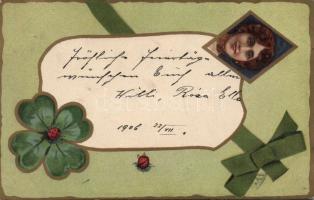 Fröhliche Feiertage
wünschen Euch allen
Willi, Rosa Ella
1906 22/VII.